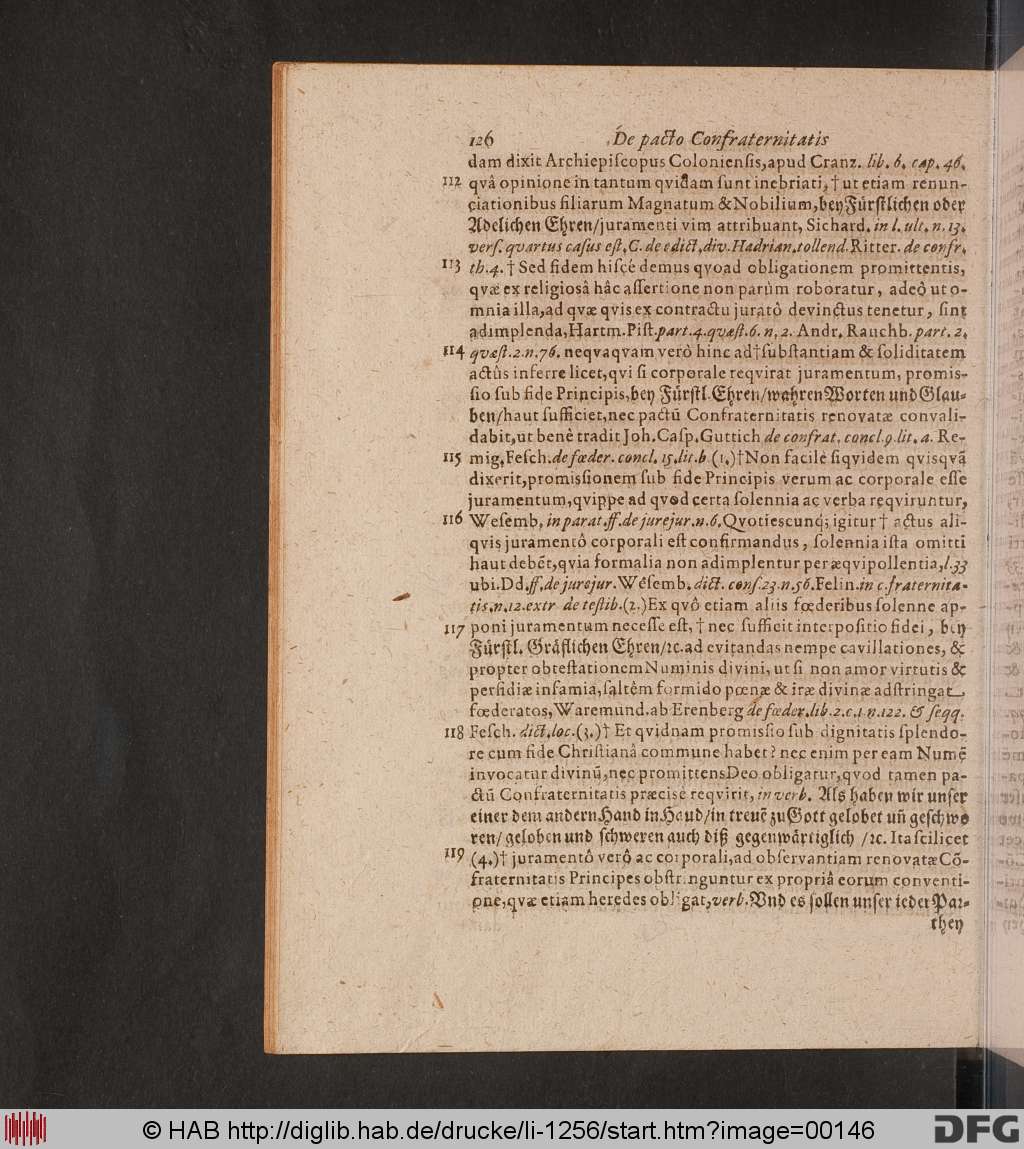 126 De pacto Confraternitatis
dam dixit Archiepiſcopus Colonienſis, apud Cranz. lib. 6. cap. 46.
112 qvâ opinione in tantum qvidam ſunt inebriati, † ut etiam renun-
ciationibus filiarum Magnatum & Nobilium, bey Fürſtlichen oder
Adelichen Ehren/ juramenti vim attribuant, Sichard. in l. ult. n. 13.
verſ. qvartus caſus eſt, C. de edict. div. Hadrian. tollend. Ritter. de confr.
113 th. 4. † Sed fidem hiſce demus qvoad obligationem promittentis,
qvæ ex religiosâ hâc aſſertione non parùm roboratur, adeò ut o-
mnia illa, ad qvæ qvis ex contractu juratò devinctus tenetur, ſint
adimplenda, Hartm. Piſt. part. 4. qvæſt. 6. n. 2. Andr. Rauchb. part. 2.
114 qvæſt. 2. n. 76. neqvaqvam verò hinc ad † ſubſtantiam & ſoliditatem
actûs inferre licet, qvi ſi corporale reqvirat juramentum, promiſ-
ſio ſub fide Principis, bey Fürſtl. Ehren/ wahren Worten und Glau-
ben/ haut ſufficiet, nec pactũ Confraternitatis renovatæ convali-
dabit, ut benè tradit Joh. Caſp. Guttich de confrat. concl. 9. lit. a. Re-
115 mig. Feſch. de fœder. concl. 15. lit. b (1.) † Non facilè ſiqvidem qvisqvã
dixerit, promisſionem ſub fide Principis verum ac corporale eſſe
juramentum, qvippe ad qvod certa ſolennia ac verba reqviruntur,
116 Weſemb. in parat. ff. de jurejur. n. 6. Qvotiescunq; igitur † actus ali-
qvis juramentô corporali eſt confirmandus, ſolennia iſta omitti
haut debẽt, qvia formalia non adimplentur per æqvipollentia, l. 33
ubi. Dd. ff. de jurejur. Weſemb. dict. conſ. 23. n. 56. Felin. in c. fraternita-
tis. n. 12. extr de teſtib. (2.) Ex qvô etiam aliis fœderibus ſolenne ap-
117 poni juramentum neceſſe eſt, † nec ſufficit interpoſitio fidei, bey
Fürſtl. Gräflichen Ehren/ ꝛc. ad evitandas nempe cavillationes, &
propter obteſtationem Numinis divini, ut ſi non amor virtutis &
perfidiæ infamia, ſaltẽm formido pœnæ & iræ divinæ adſtringat
fœderatos, Waremund. ab Erenberg de fœder. lib. 2. c. 1 n. 122. & ſeqq.
118 Feſch. dict. loc. (3.) † Et qvidnam promisſio ſub dignitatis ſplendo-
re cum fide Chriſtianâ commune habet? nec enim per eam Numẽ
invocatur divinũ, nec promittens Deo obligatur, qvod tamen pa-
ctũ Confraternitatis præcisè reqvirit, in verb. Als haben wir unſer
einer dem andern Hand in Hand/ in treuẽ zu Gott gelobet uñ geſchwo
ren/ geloben und ſchweren auch diß gegenwärtiglich / ꝛc. Ita ſcilicet
119 (4.) † juramentô verô ac corporali, ad obſervantiam renovatæ Cõ-
fraternitatis Principes obſtringuntur ex propriâ eorum conventi-
one, qvæ etiam heredes obligat, verb. Vnd es ſollen unſer ieder Par-
they
© HAB http://diglib.hab.de/drucke/li-1256/start.htm?image=00146
DFG